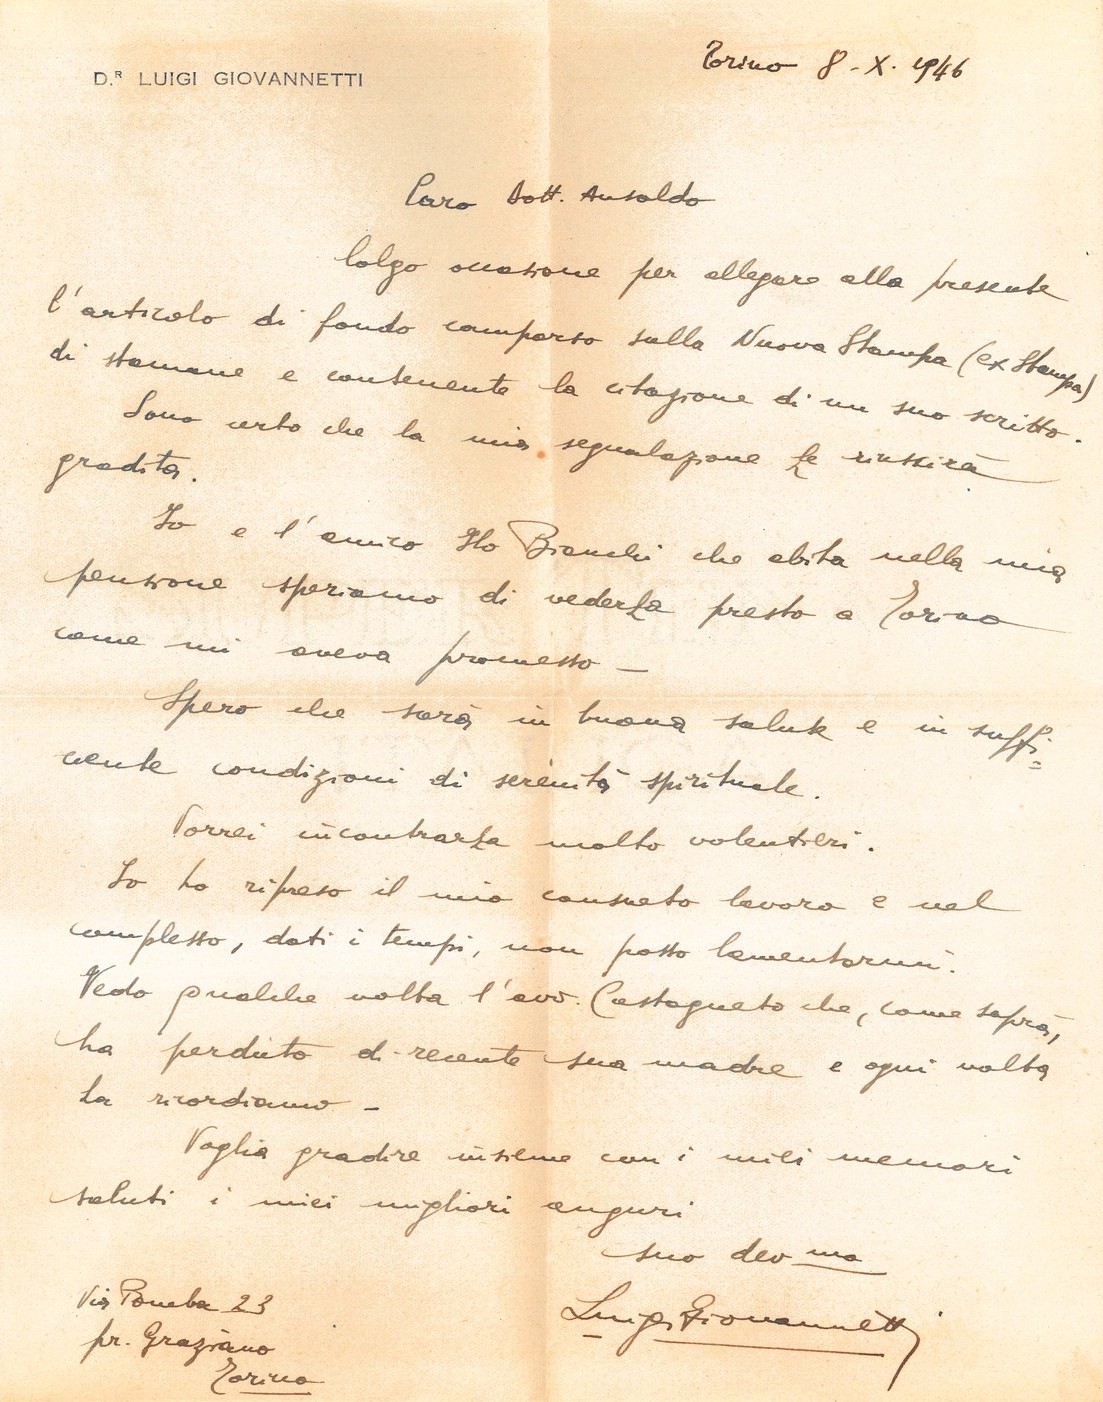 D.R LUIGI GIOVANNETTI
Torino 8-X. 1946
Caro Dott. Ansaldo
Colgo occasione per allegare alla presente
l'articolo di fondo comparso sulla Nuova Stampa (ex Stampa)
di stamane e contenente la citazione di un suo scritto.
Sono certo che la mia segnalazione Le riuscirà
gradita.
Io e l'amico Ilo Bianchi che abita nella mia
pensione speriamo di vederLa presto a Torino
come mi aveva promesso —
Spero che sarà in buona salute e in suffi=
cente condizioni di serenità spirituale.
Vorrei incontrarLa molto volentieri.
Io ho ripreso il mio consueto lavoro e nel
complesso, dati i tempi, non posso lamentarmi.
Vedo qualche volta l'avv. Castagneto che, come saprà,
ha perduto di recente sua madre e ogni volta
La ricordiamo —
Voglia gradire insieme con i miei memori
saluti i miei migliori auguri
suo dev mo
Luigi Giovannetti
Via Pomba 23
pr. Graziano
Torino